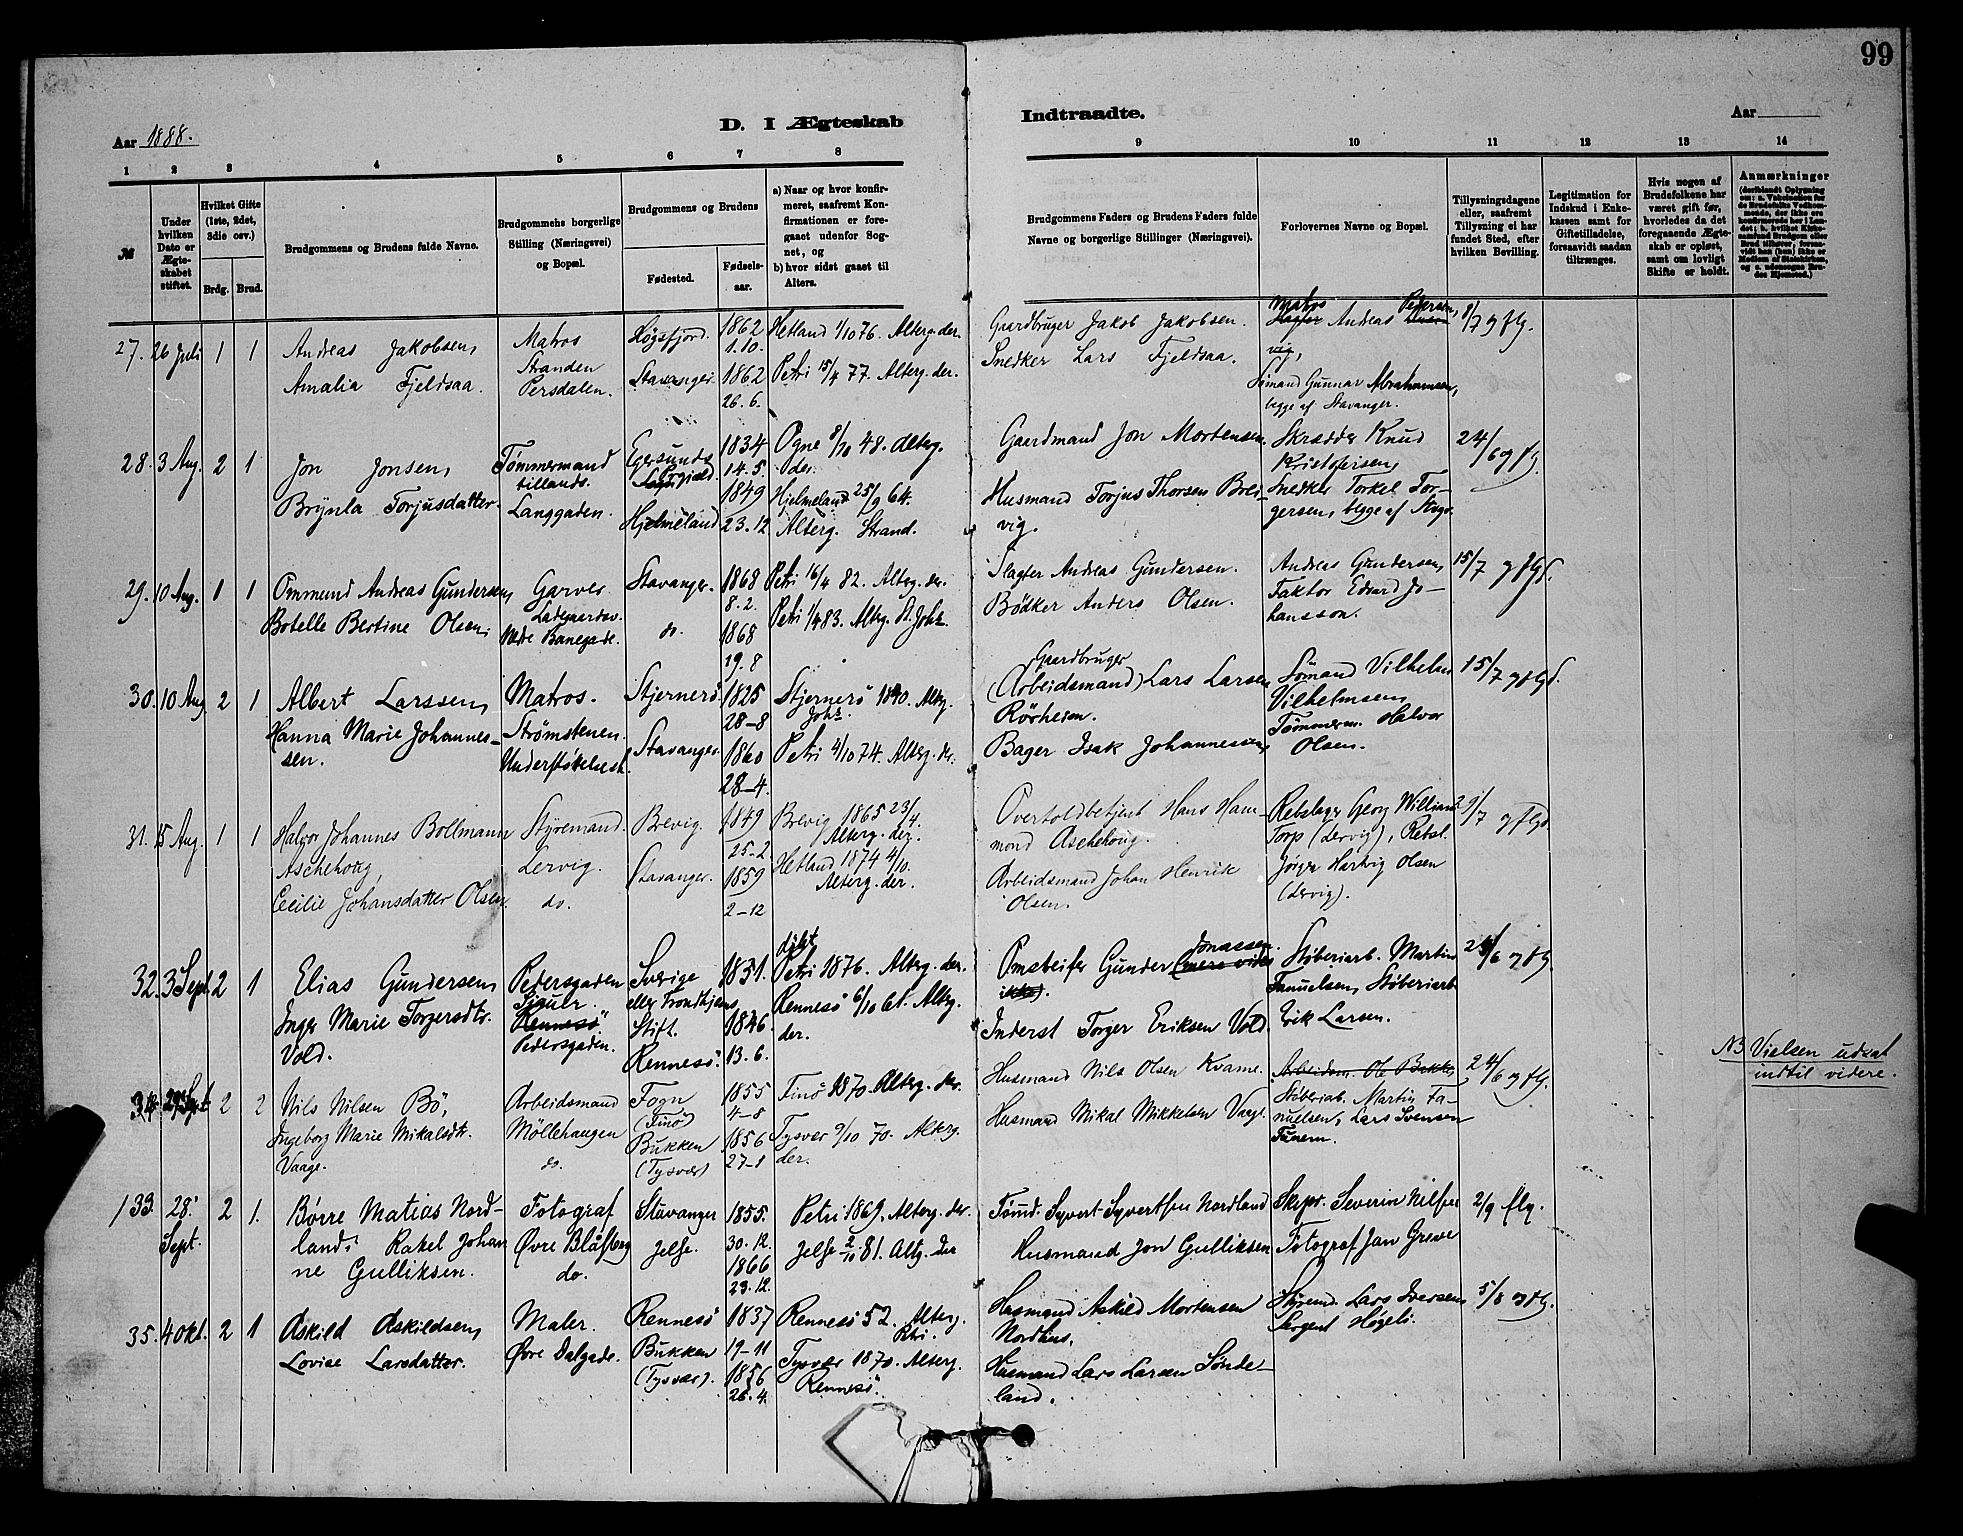 99
D. I Ægteskab Indtraadte.
Aar 1888. Aar
1 2 3 4 5 6 7 8 9 10 11 12 13 14
№
Under hvilken Dato er Ægteskabet stiftet.
Hvilket Gifte (1ste, 2det, 3die osv.)
Brdg. Brud.
Brudgommens og Brudens fulde Navne.
Brudgommens borgerlige Stilling (Næringsvei) og Bopæl.
Brudgommens og Brudens
Fødested. Fødselsaar.
a) Naar og hvor konfirmeret, saafremt Konfirmationen er foregaaet udenfor Sognet, og
b) hvor sidst gaaet til Alters.
Brudgommens Faders og Brudens Faders fulde Navne og borgerlige Stillinger (Næringsvei).
Forlovernes Navne og Bopæl.
Tillysningsdagene eller, saafremt Tillysning ei har fundet Sted, efter hvilken Bevilling.
Legitimation for Indskud i Enkekassen samt for Giftetilladelse, forsaavidt saadan tiltrænges.
Hvis nogen af Brudefolkene har været gift før, hvorledes da det foregaaende Ægteskab er opløst, samt om lovligt Skifte er holdt.
Anmærkninger
27. 26 Juli 1 1
Andreas Jakobsen,
Amalia Fjeldsaa.
Matros
Stranden
Persdalen.
Høgsfjord.
Stavanger.
1862
1.10.
1862
26.6.
Hetland 1/10 76. Alterg. der.
Petri 15/4 77. Alterg. der.
Gaardbruger Jakob Jakobsen.
Snedker Lars Fjeldsaa.
Matros Pedersen,
Andreas
Sømand Gunnar Abrahamsen,
begge af Stavanger.
8/7 og flg.
28. 3 Aug. 2 1
Jon Jonsen,
Brynla Torjusdatter.
Tømmermand
tillands.
Langgaden.
Egersunds
Hjelmeland
1834
14.5
1849
23.12
Ogne 8/10 48. Alterg.
der.
Hjelmeland 25/9 64.
Alterg. Strand.
Gaardmand Jon Mortensen.
Husmand Torjus Thorsen Brei-
vig.
Skrædder Knud
Kristofersen,
Snedker Torkel Tor-
gersen, begge af Stvgr.
24/6 og flg.
29. 10 Aug. 1 1
Ommund Andreas Gundersen,
Botelle Bertine Olsen,
Garver
Ladegaardsv.
Nedre Banegade.
Stavanger.
do.
1868
8.2.
1868
19.8
Petri 16/4 82. Alterg. der.
Petri 1/4 83. Alterg. St. Joh.
Slagter Andreas Gundersen.
Bødker Anders Olsen.
Andreas Gundersen,
Faktor Edvard Jo-
hansson.
15/7 og flgd.
30. 10 Aug 2 1
Albert Larssen,
Hanna Marie Johannes-
sen.
Matros.
Strømstenen.
Stjernerö.
Stavanger.
1825
28-8
1860
28-4.
Stjernerö 1840. Alterg.
Joh.
Petri 4/10 74. Alterg. der.
Gaardbruger
(Arbeidsmand) Lars Larsen
Bager Isak Johannessen,
Sømand Vilhelm
Vilhelmsen,
Tømmerm. Halvor
Olsen.
15/7 og flgd.
31. 15 Aug. 1 1
Halvor Johannes Bollmann
Aschehoug,
Cecilie Johansdatter Olsen.
Styremand.
Lervig.
do.
Brevig.
Stavanger.
1849
25-2
1859
2-12
Brevig 1865 23/4.
Alterg. der.
Hetland 1874 4/10.
Alterg. der.
Overtoldbetjent Hans Ham-
mond Aschehoug.
Arbeidsmand Johan Henrik
Olsen.
Rebslager Georg William
Torp (Lervig), Rebsl.
Jörgen Hartvig Olsen
(Lervig).
og flgd.
32. 3 Sept. 2 1
Elias Gundersen,
Inger Marie Torgersdtr.
Vold.
Pedersgaden
Rennesö
Pedersgaden.
Sverige
eller Trondhjems
Stift.
Rennesö.
1831.
1846.
13.6.
døbt
Petri 1876. Alterg. der.
Rennesö 6/10 61. Alterg.
der.
Omstreifer Gunder Jonassen.
Inderst Torger Eriksen Vold.
Støberiarb. Martin
Fanuelsen, Støberiarb
Erik Larsen.
24/6 og flg.
34. 29 Sept. 2 2
Nils Nilsen Bö,
Ingeborg Marie Mikalsdtr.
Vaage.
Arbeidsmand
Möllehaugen
do.
Fogn
(Finö)
Bukken
(Tysvær)
1855
4-8
1856
27-1
Finö 1870. Alterg. der.
Tysvær 9/10 70. Alterg.
der.
Husmand Nils Olsen Kvame.
Husmand Mikal Mikkelsen Vaage.
Arbeidsm. Ole Bukken
Støberiab. Martin Fa-
nuelsen, Lars Svensen
Tunem.
24/6 og flg.
NB Vielsen udsat
indtil videre.
33. 28. Sept. 2 1.
Børre Matias Nord-
land. Rakel Johan
ne Gulliksen.
Fotograf
Øvre Blåsberg
do.
Stavanger
Jelse.
1855.
30.12.
1866
23.12.
Petri 1869. Alterg. der.
Jelse 2/10 81. Altg. der
Tømd. Syvert Syvertsen Nordland
Husmand Jon Gulliksen
Skipr. Severin Nilsen
Fotograf Jan Greve
2/9 flg.
35. 4 Okt. 2 1
Askild Askildsen,
Lovise Larsdatter.
Maler.
Øvre Dalgade.
Rennesö
Bukken
(Tysvær).
1837
19-11
1856
26.4.
Rennesö 52. Alterg.
Petri.
Tysvær 1870. Alterg.
Rennesö.
Husmand Askild Mortensen
Nordhus.
Husmand Lars Larsen Sønde-
land.
Styrmd. Lars Iversen,
Sergent Høgeli.
5/8 og flg.